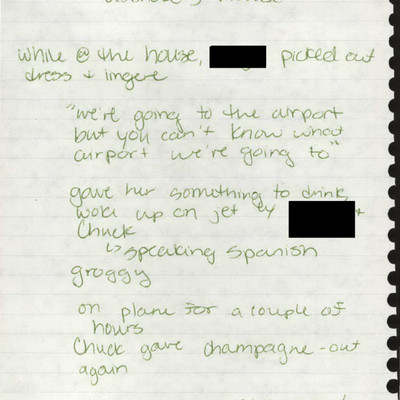 while @ the house, picked out
dress + lingere
"we're going to the airport
but you can't know what
airport we're going to"
gave her something to drink
woke up on jet w/ +
Chuck
↳ speaking Spanish
groggy
on plane for a couple of
hours
Chuck gave champagne - out
again